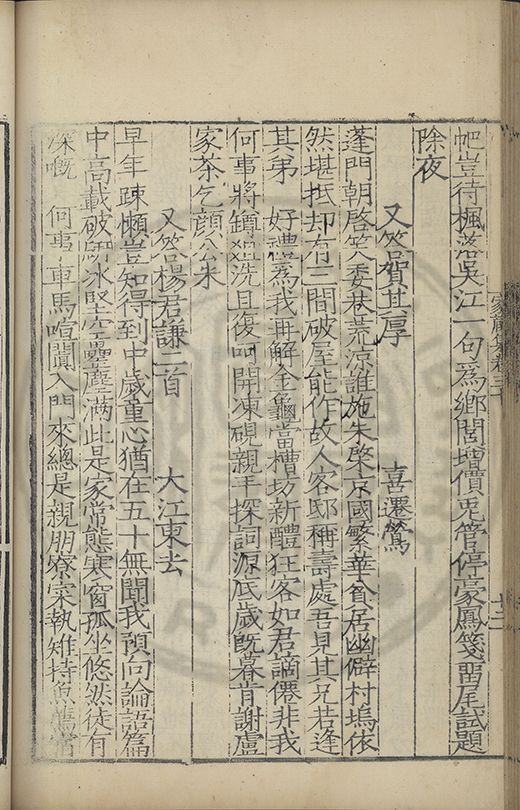 豈待楓落吳江一句爲鄉閭增價兎管停豪鳳箋畱尾試題
除夜
又答賀其厚 喜遷鶯
蓬門朝啓笑委巷荒涼誰施朱棨京國繁華貧居幽僻村塢依
然堪抵却有三間破屋能作故人客邸稱壽處吾見其兄若逢
其弟 好禮爲我再解金龜當槽坊新醴狂客如君謫僊非我
何事將鐏俎洗且復呵開凍硯親手探詞源底歲旣暮肯謝盧
家茶乞顏公米
又答楊君謙二首 大江東去
早年疎懶豈知得到中歲重心猶在五十無聞我預向論語篇
中高載破硏冰堅空罍塵滿此是家常態寒窗孤坐悠然徒有
深嘅 何事車馬喧闐入門來總是親朋寮寀執雉持魚